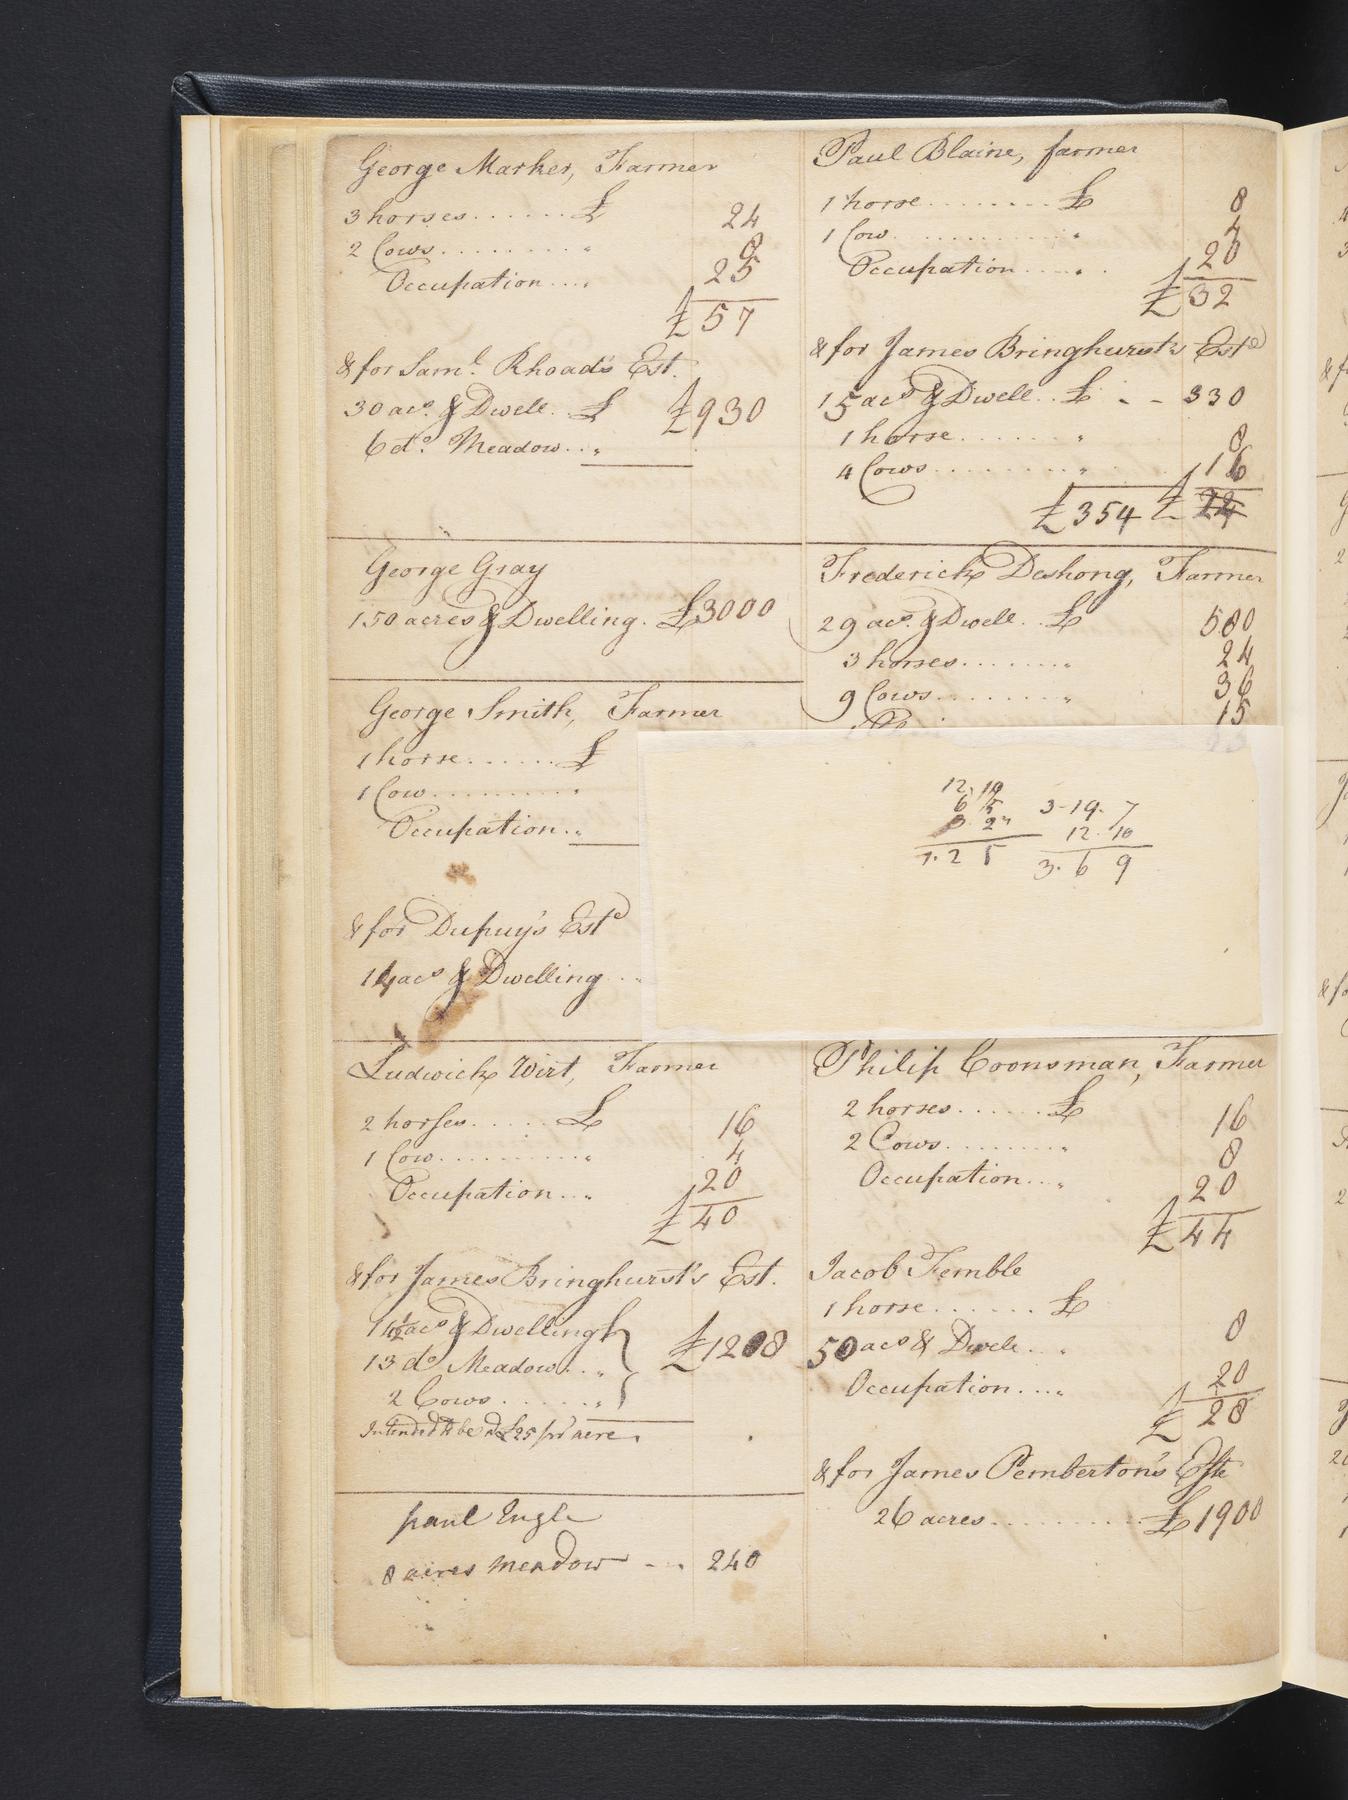 George Marker, Farmer
3 horses . . . . . . £ 24
2 Cows . . . . . . . . . " 8
Occupation . . . . 25
£ 57
& for Saml. Rhoads's Est.
30 acs. & Dwell. . £ £930
6 do. Meadow . . "
George Gray
150 acres & Dwelling . £3000
George Smith, Farmer
1 horse . . . . . . £
1 Cow . . . . . . . . . "
Occupation . "
& for Dupuy's Estd
14 acs & Dwelling . .
Ludwick Wirt, Farmer
2 horses . . . . . £ 16
1 Cow . . . . . . . . . . " 4
Occupation . . " 20
£ 40
& for James Bringhurst's Est.
acs & Dwelling
13 do Meadow . . " £1208
2 Cows . . . . . . "
Intended to be at £25 pr acre.
paul Engle
8 acres meadow - - . 240
Paul Blaine, farmer
1 horse . . . . . . . . . £ 8
1 Cow . . . . . . . . . . . " 4
Occupation . . . . " . 20
£ 32
& for James Bringhurst's Estd
15 acs & Dwell . . £ . - - 330
1 horse . . . . . . . " 8
4 Cows . . . . . . . . " 16
£354 £
Frederick Deshong, Farmer
29 acs. & Dwell . . £ 580
3 horses . . . . . . . " 24
9 Cows . . . . . . . . " 36
15
12. 10
6 5 3-19. 7
2 12. 10
7. 2 5 3. 6 9
Philip Coonsman, Farmer
2 horses . . . . . . £ 16
2 Cows . . . . . . . . " 8
Occupation . . . " 20
£ 44
Jacob Femble
1 horse . . . . . . . £ 8
50 acs & Dwell . . "
Occupation . . . . " 20
£ 28
& for James Pemberton's Este
26 acres . . . . . . . . . . £1900